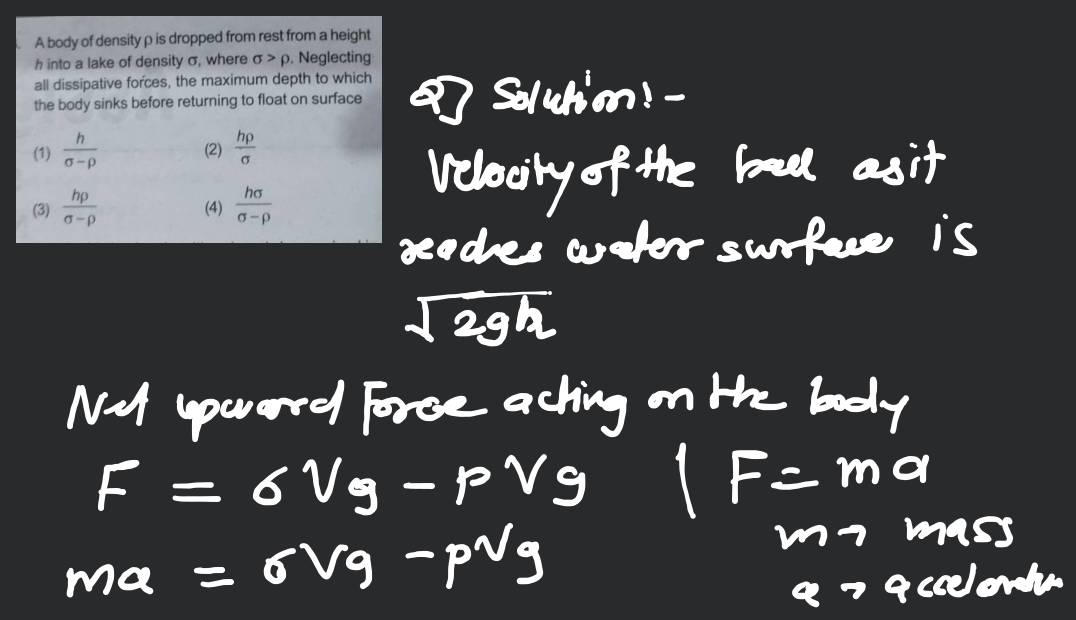 A body of density ρ is dropped from rest from a height
h into a lake of density σ, where σ > ρ. Neglecting
all dissipative forces, the maximum depth to which
the body sinks before returning to float on surface
(1) h/(σ-ρ) (2) hρ/σ
(3) hρ/(σ-ρ) (4) hσ/(σ-ρ)
Q] Solution:-
Velocity of the ball as it
reaches water surface is
√2gh
Net upward Force acting on the body
F = σVg - ρVg | F = ma
m → mass
ma = σVg - ρVg
a → acceleration